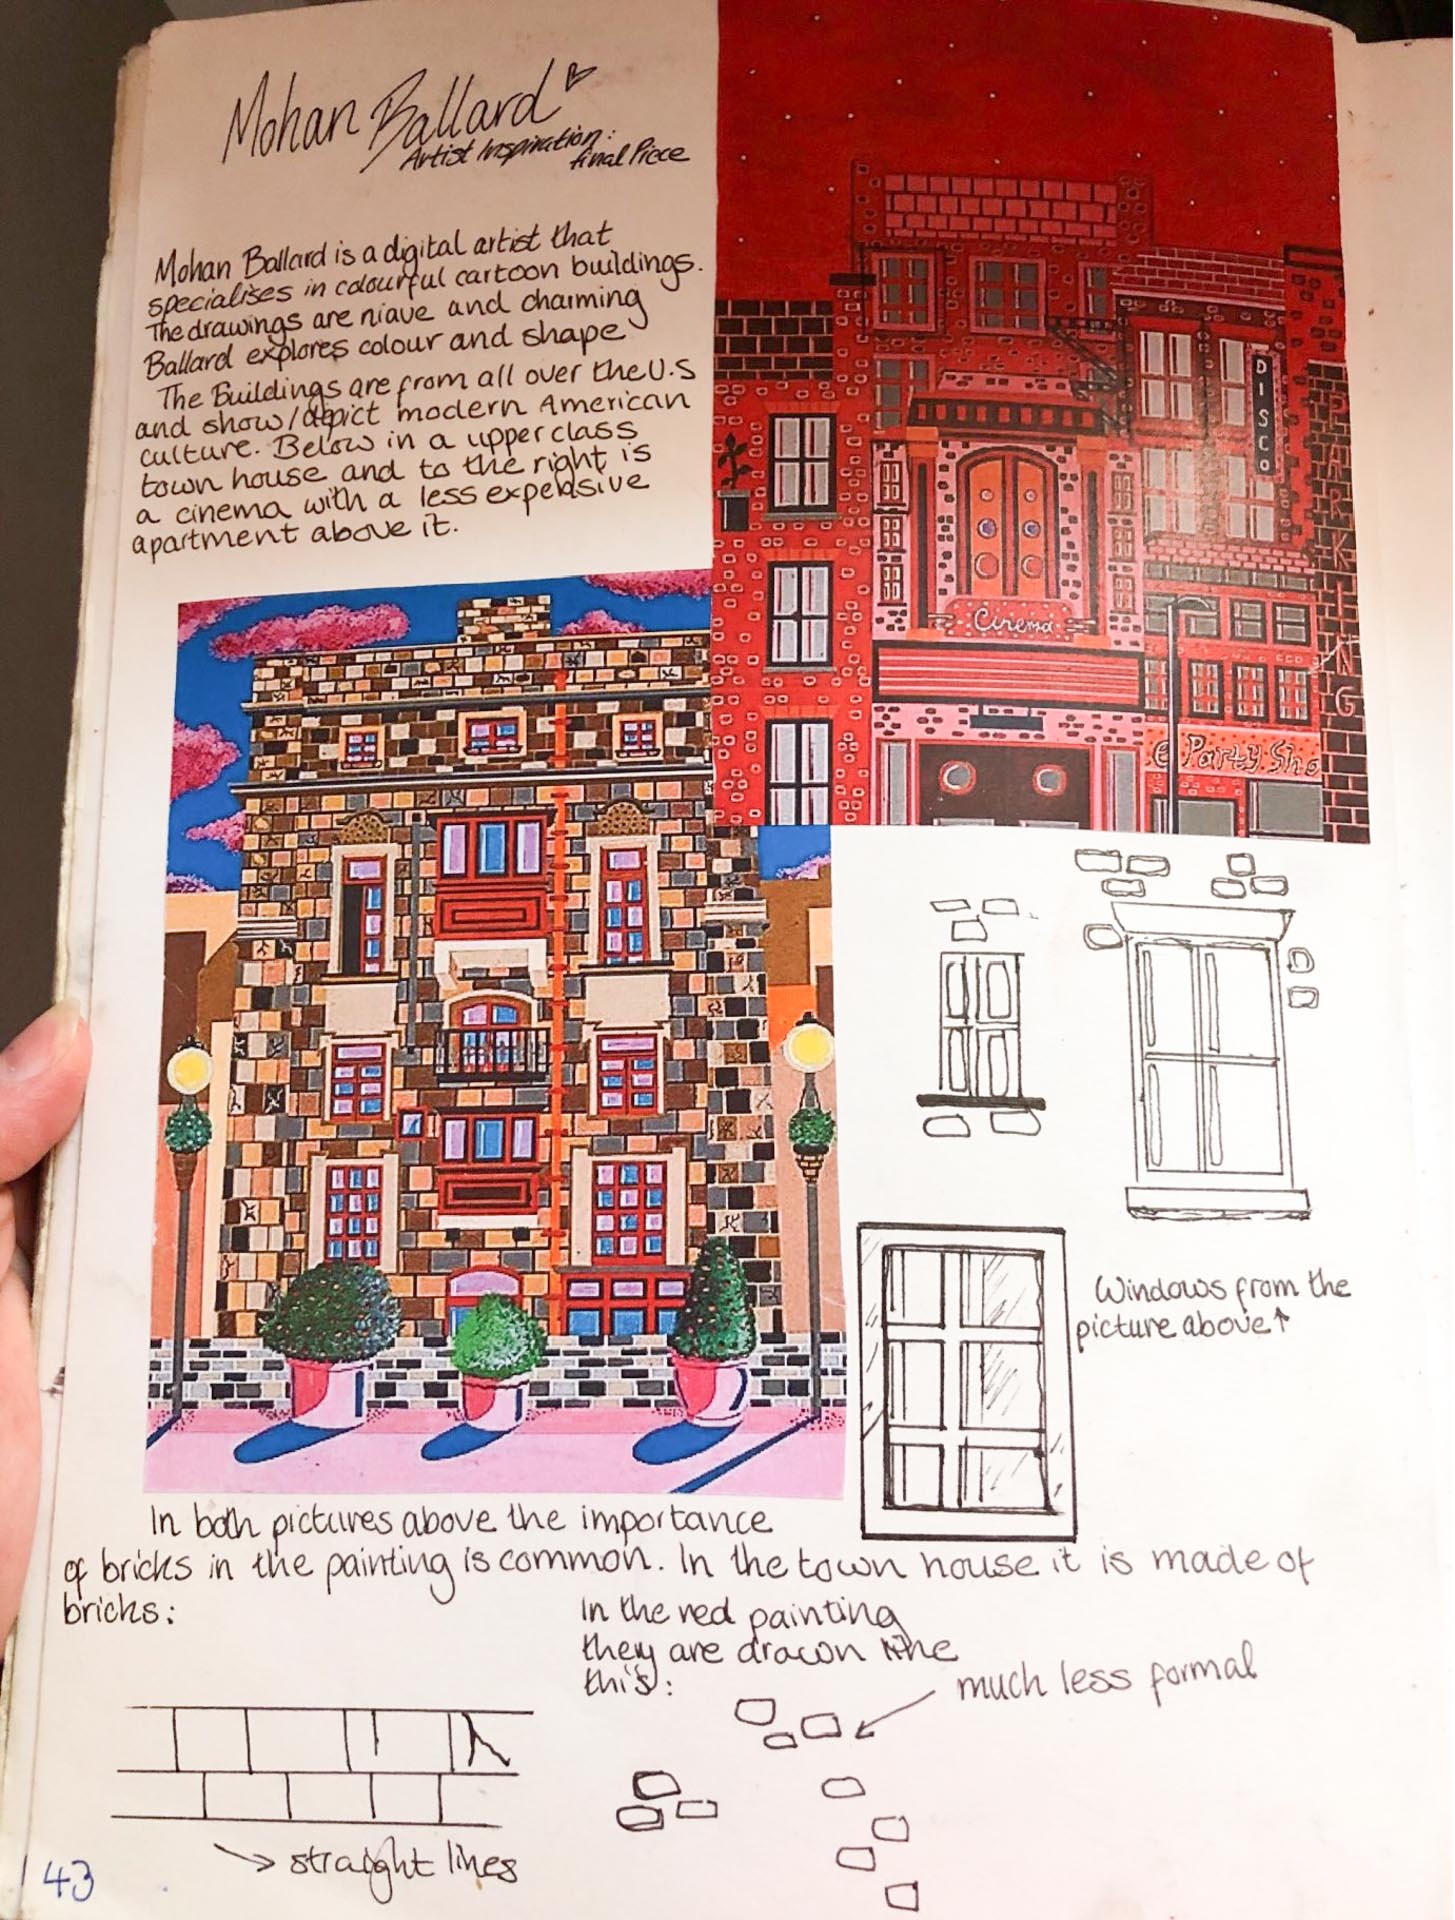 Mohan Ballard
Artist Inspiration:
final Piece
Mohan Ballard is a digital artist that
specialises in colourful cartoon buildings.
The drawings are niave and charming
Ballard explores colour and shape
The Buildings are from all over the U.S
and show/depict modern American
culture. Below in a upper class
town house and to the right is
a cinema with a less expensive
apartment above it.
DISCO
PARKING
Cinema
e Party Sho
Windows from the
picture above↑
In both pictures above the importance
of bricks in the painting is common. In the town house it is made of
bricks:
In the red painting
they are drawn like
this:
much less formal
straight lines
43